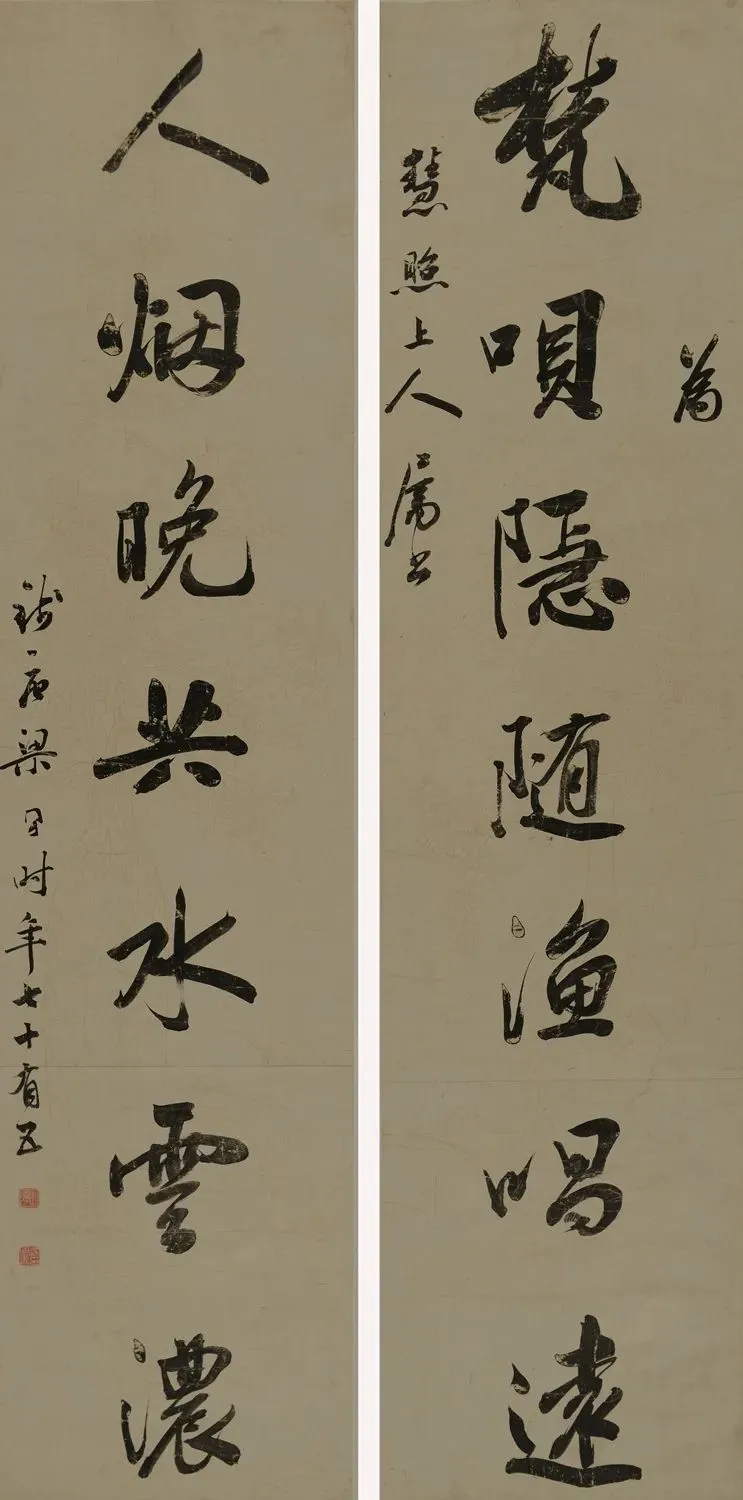 為
梵唄隐随渔唱遠
慧照上人属書
人烟晚共水雲濃
錢唐梁同書时年七十有五